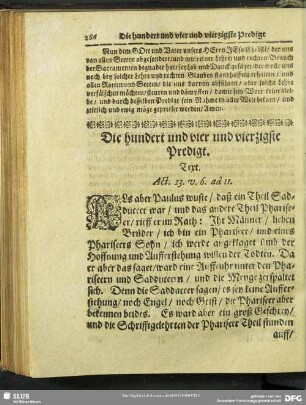 266 Die hundert und vier und vierzigste Predigt
Nun dem GOtt und Vater unsers HErrn JEsu Christi / der uns
von allen Secten abgesondert / und mit reiner Lehre und rechtem Brauch
der Sacramenten begnadet hat / sey Lob und Danck gesaget / der wolle uns
noch bey solcher Lehre und rechten Glauben standhafftig erhalten / und
allen Rotten und Secten / die uns darvon abführen / oder solche Lehr
verfälschen möchten / steuren und wehren / damit sein Wort rein bleibe / und durch desselben Predigt sein Nahme in aller Welt bekant / und
zeitlich und ewig möge gepreiset werden / Amen.
Die hundert und vier und vierzigste
Predigt.
Text.
Act. 23. v. 6. ad 11.
ALs aber Paulus wuste / daß ein Theil Sad-
duceer war / und das andere Theil Pharise-
er / rieff er im Rath: Ihr Männer / lieben
Brüder / ich bin ein Phariseer / und eines
Phariseers Sohn / ich werde angeklaget umb der
Hoffnung und Aufferstehung willen der Todten. Da
er aber das saget / ward eine Auffruhr unter den Pha-
riseern und Sadduceern / und die Menge zerspaltet
sich. Denn die Sadduceer sagen / es sey keine Auffer-
stehung / noch Engel / noch Geist / die Phariseer aber
bekennen beides. Es ward aber ein groß Geschrey /
und die Schrifftgelehrten der Phariseer Theil stunden
auff /
SLUB
Wir führen Wissen.